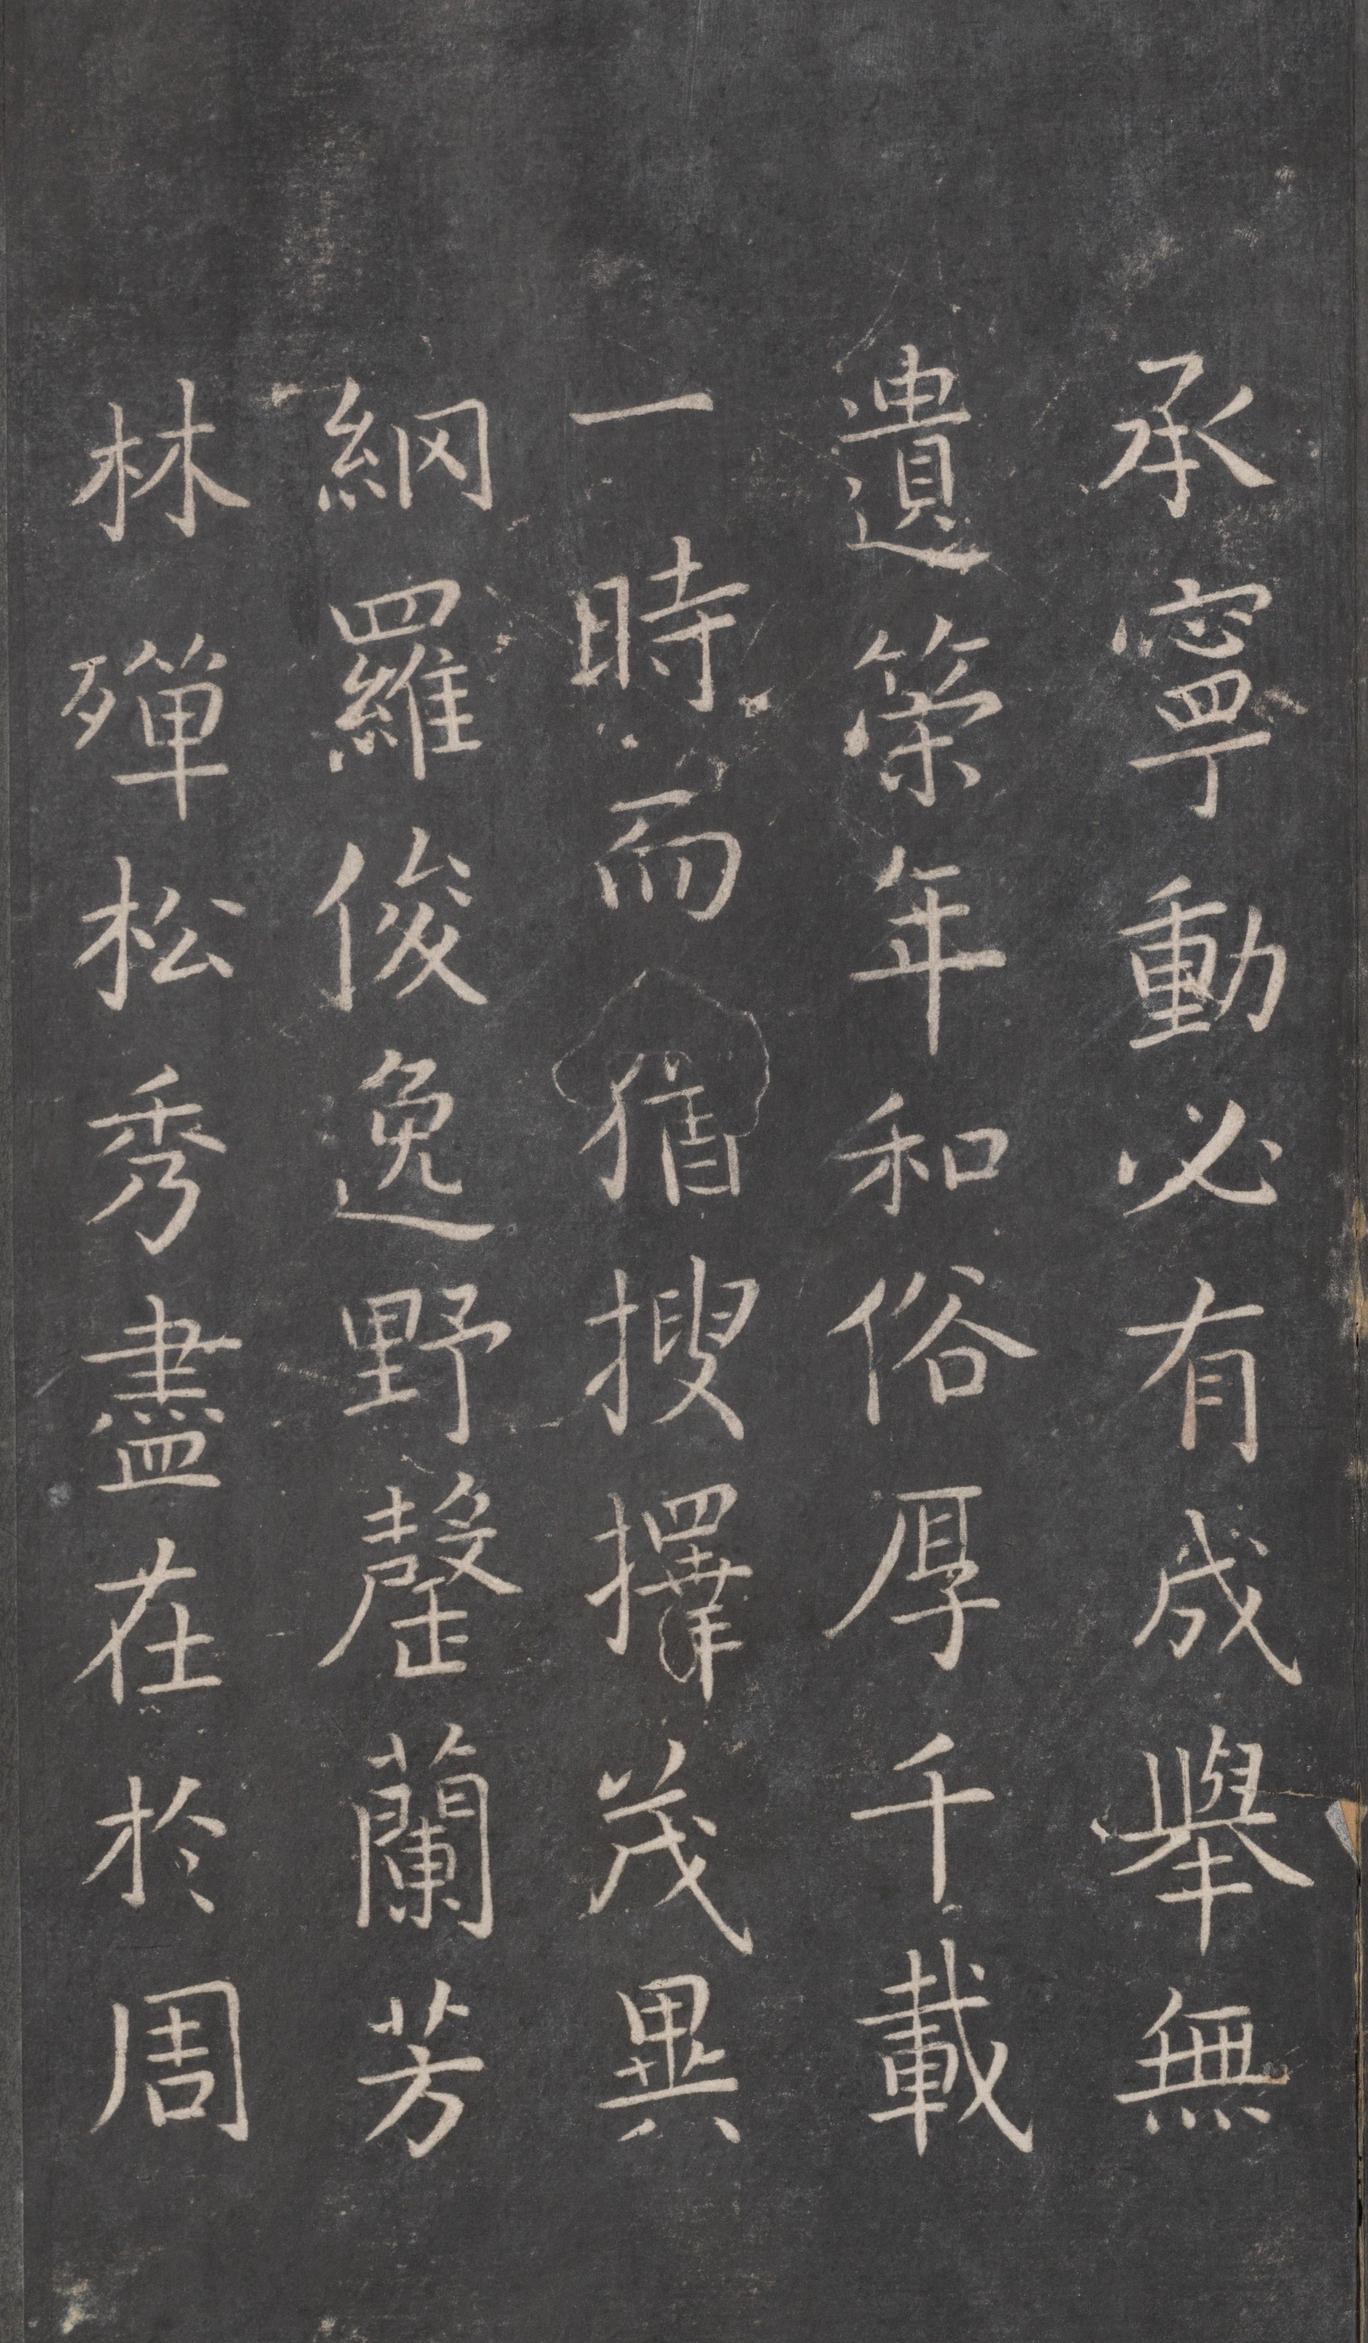 承寧動必有成舉無
遺筞年和俗厚千載
一時而猶搜擇茂異
網羅俊逸野罄蘭芳
林殫松秀盡在於周